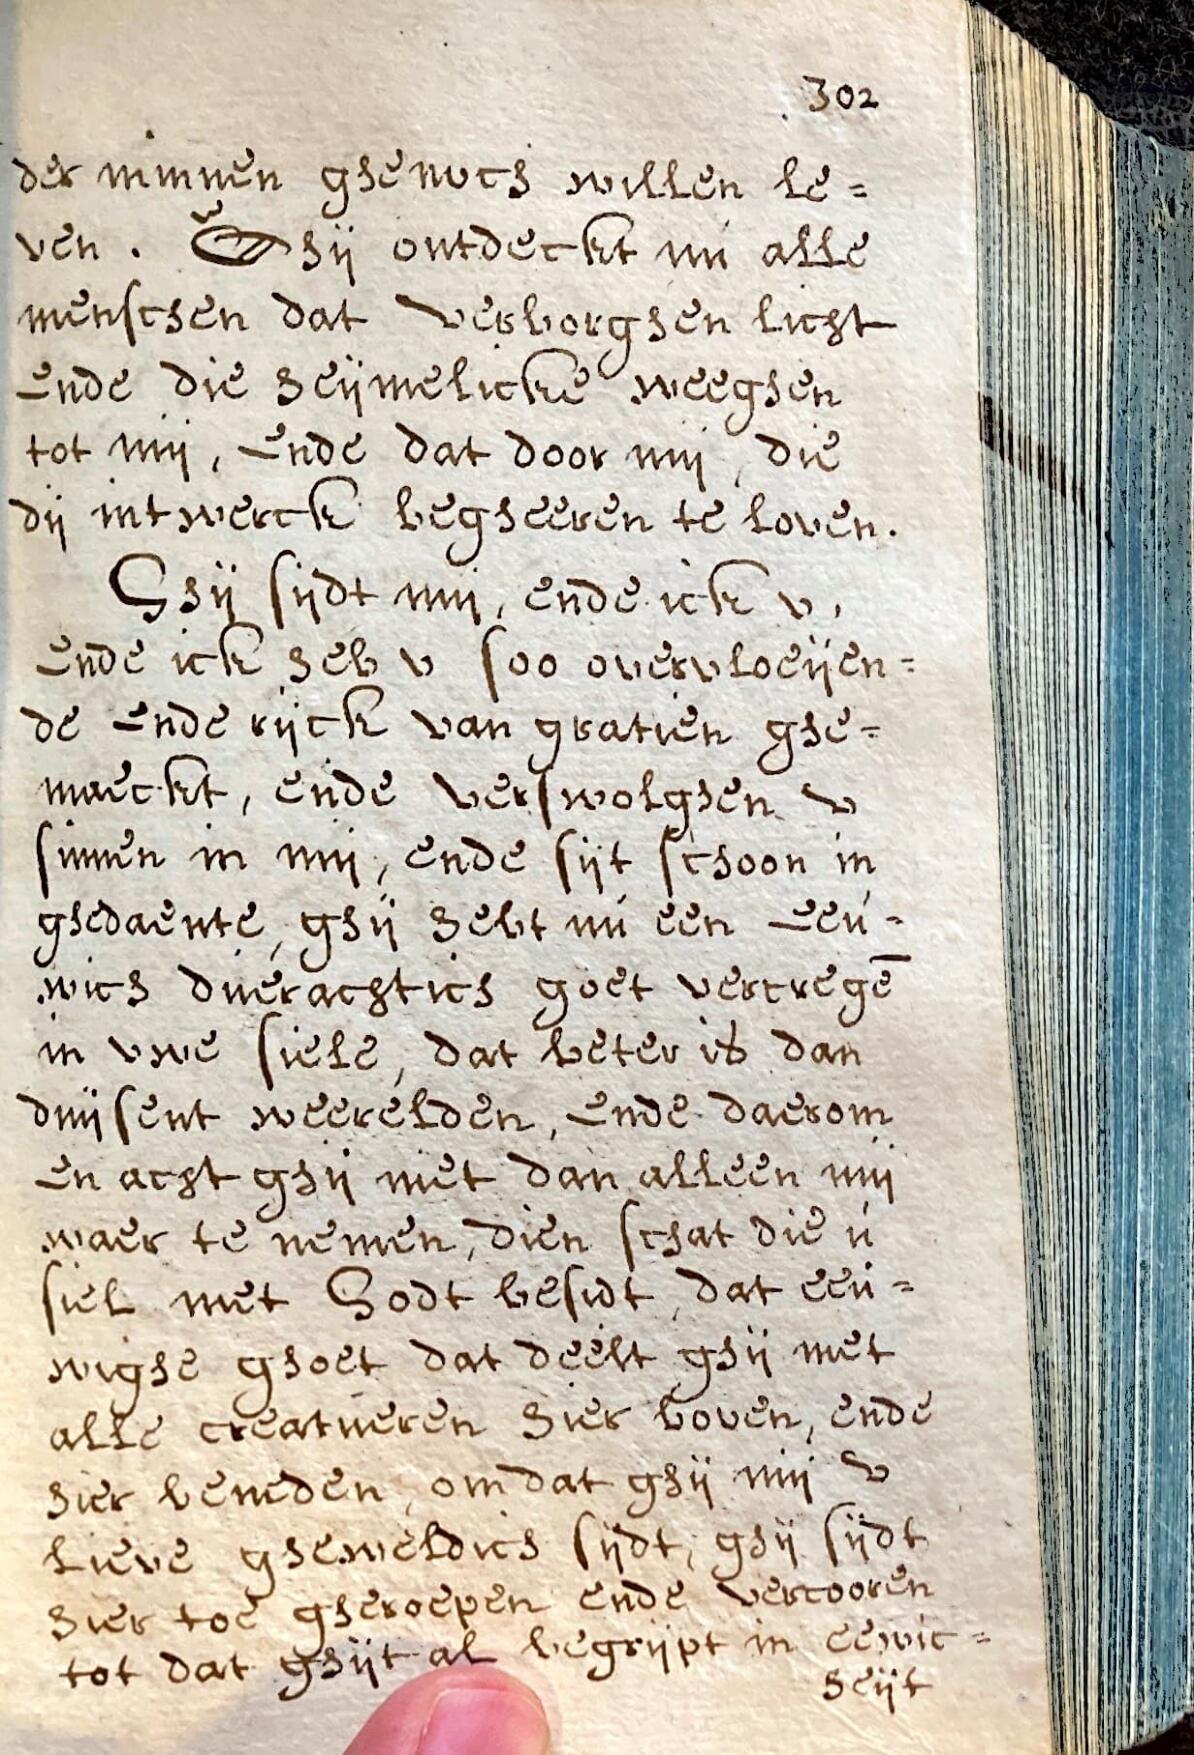 302
der minnen ghenoch willen le=
ven. Ghij ontdeckt nú alle
menschen dat verborghen licht
ende die heijmelicke weeghen
tot mij, ende dat door mij, die
dij int werck begheeren te loven.
Ghij sijdt mij, ende ick v,
ende ick heb v soo overvloeijen=
de ende rijck van gratien ghe=
maeckt, ende verswolghen v
sinnen in mij, ende sijt schoon in
ghedaente, ghij hebt nú een eeú=
wich duerachtich goet vercregē
in vwe siele, dat beter is dan
duijsent weerelden, ende daerom
en acht ghij niet dan alleen mij
waer te nemen, dien schat die ú
siel met Godt besidt, dat eeú=
wighe ghoet dat deelt ghij met
alle creatueren hier boven, ende
hier beneden, omdat ghij mij v
lieve gheweldich sijdt, ghij sijdt
hier toe gheroepen ende vercooren
tot dat ghijt al begrijpt in eewic=
heijt